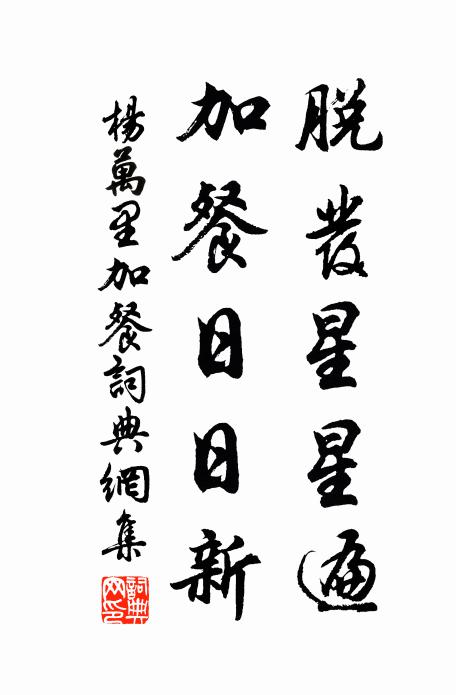 脫發星星遍
加餐日日新
楊萬里加餐詞典網集
詞典網印